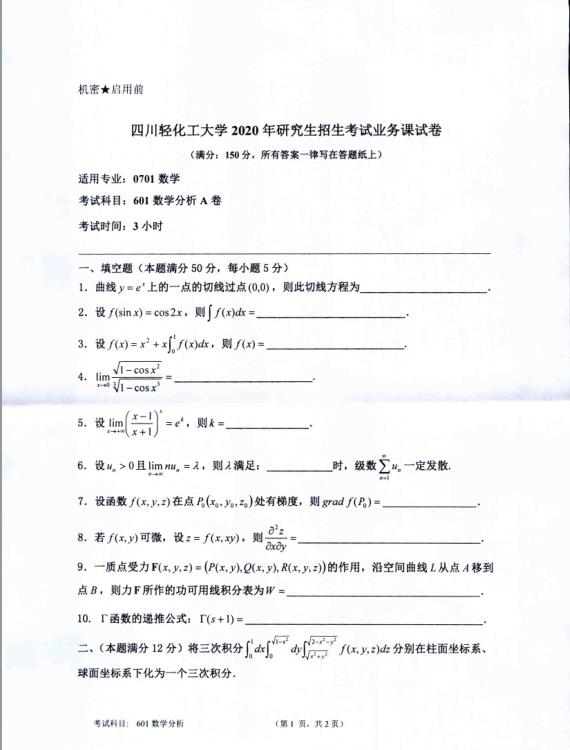 机密★启用前
四川轻化工大学 2020 年研究生招生考试业务课试卷
（满分：150 分，所有答案一律写在答题纸上）
适用专业：0701 数学
考试科目：601 数学分析 A 卷
考试时间：3 小时
一、填空题（本题满分 50 分，每小题 5 分）
1．曲线 y = e^x 上的一点的切线过点(0,0)，则此切线方程为____________．
2．设 f(sin x) = cos2x，则∫ f(x)dx = ____________．
3．设 f(x) = x² + x∫₀¹ f(x)dx，则 f(x) = ____________．
4．lim_{x→0} √(1−cos x²) / ∛(1−cos x³) = ____________．
5．设 lim_{x→+∞} ((x−1)/(x+1))^x = e^k，则 k = ____________．
6．设 uₙ > 0 且 lim_{n→∞} nuₙ = λ，则 λ 满足：________时，级数 ∑_{n=1}^{∞} uₙ 一定发散.
7．设函数 f(x,y,z) 在点 P₀(x₀,y₀,z₀) 处有梯度，则 grad f(P₀) = ____________．
8．若 f(x,y) 可微，设 z = f(x,xy)，则 ∂²z/∂x∂y = ____________．
9．一质点受力 F(x,y,z) = (P(x,y,z),Q(x,y,z),R(x,y,z)) 的作用，沿空间曲线 L 从点 A 移到
点 B，则力 F 所作的功可用线积分表为 W = ____________．
10．Γ 函数的递推公式：Γ(s+1) = ____________．
二、（本题满分 12 分）将三次积分 ∫₀¹ dx ∫₀^{√(1−x²)} dy ∫_{√(x²+y²)}^{√(2−x²−y²)} f(x,y,z)dz 分别在柱面坐标系、
球面坐标系下化为一个三次积分．
考试科目： 601 数学分析 （第 1 页，共 2 页）